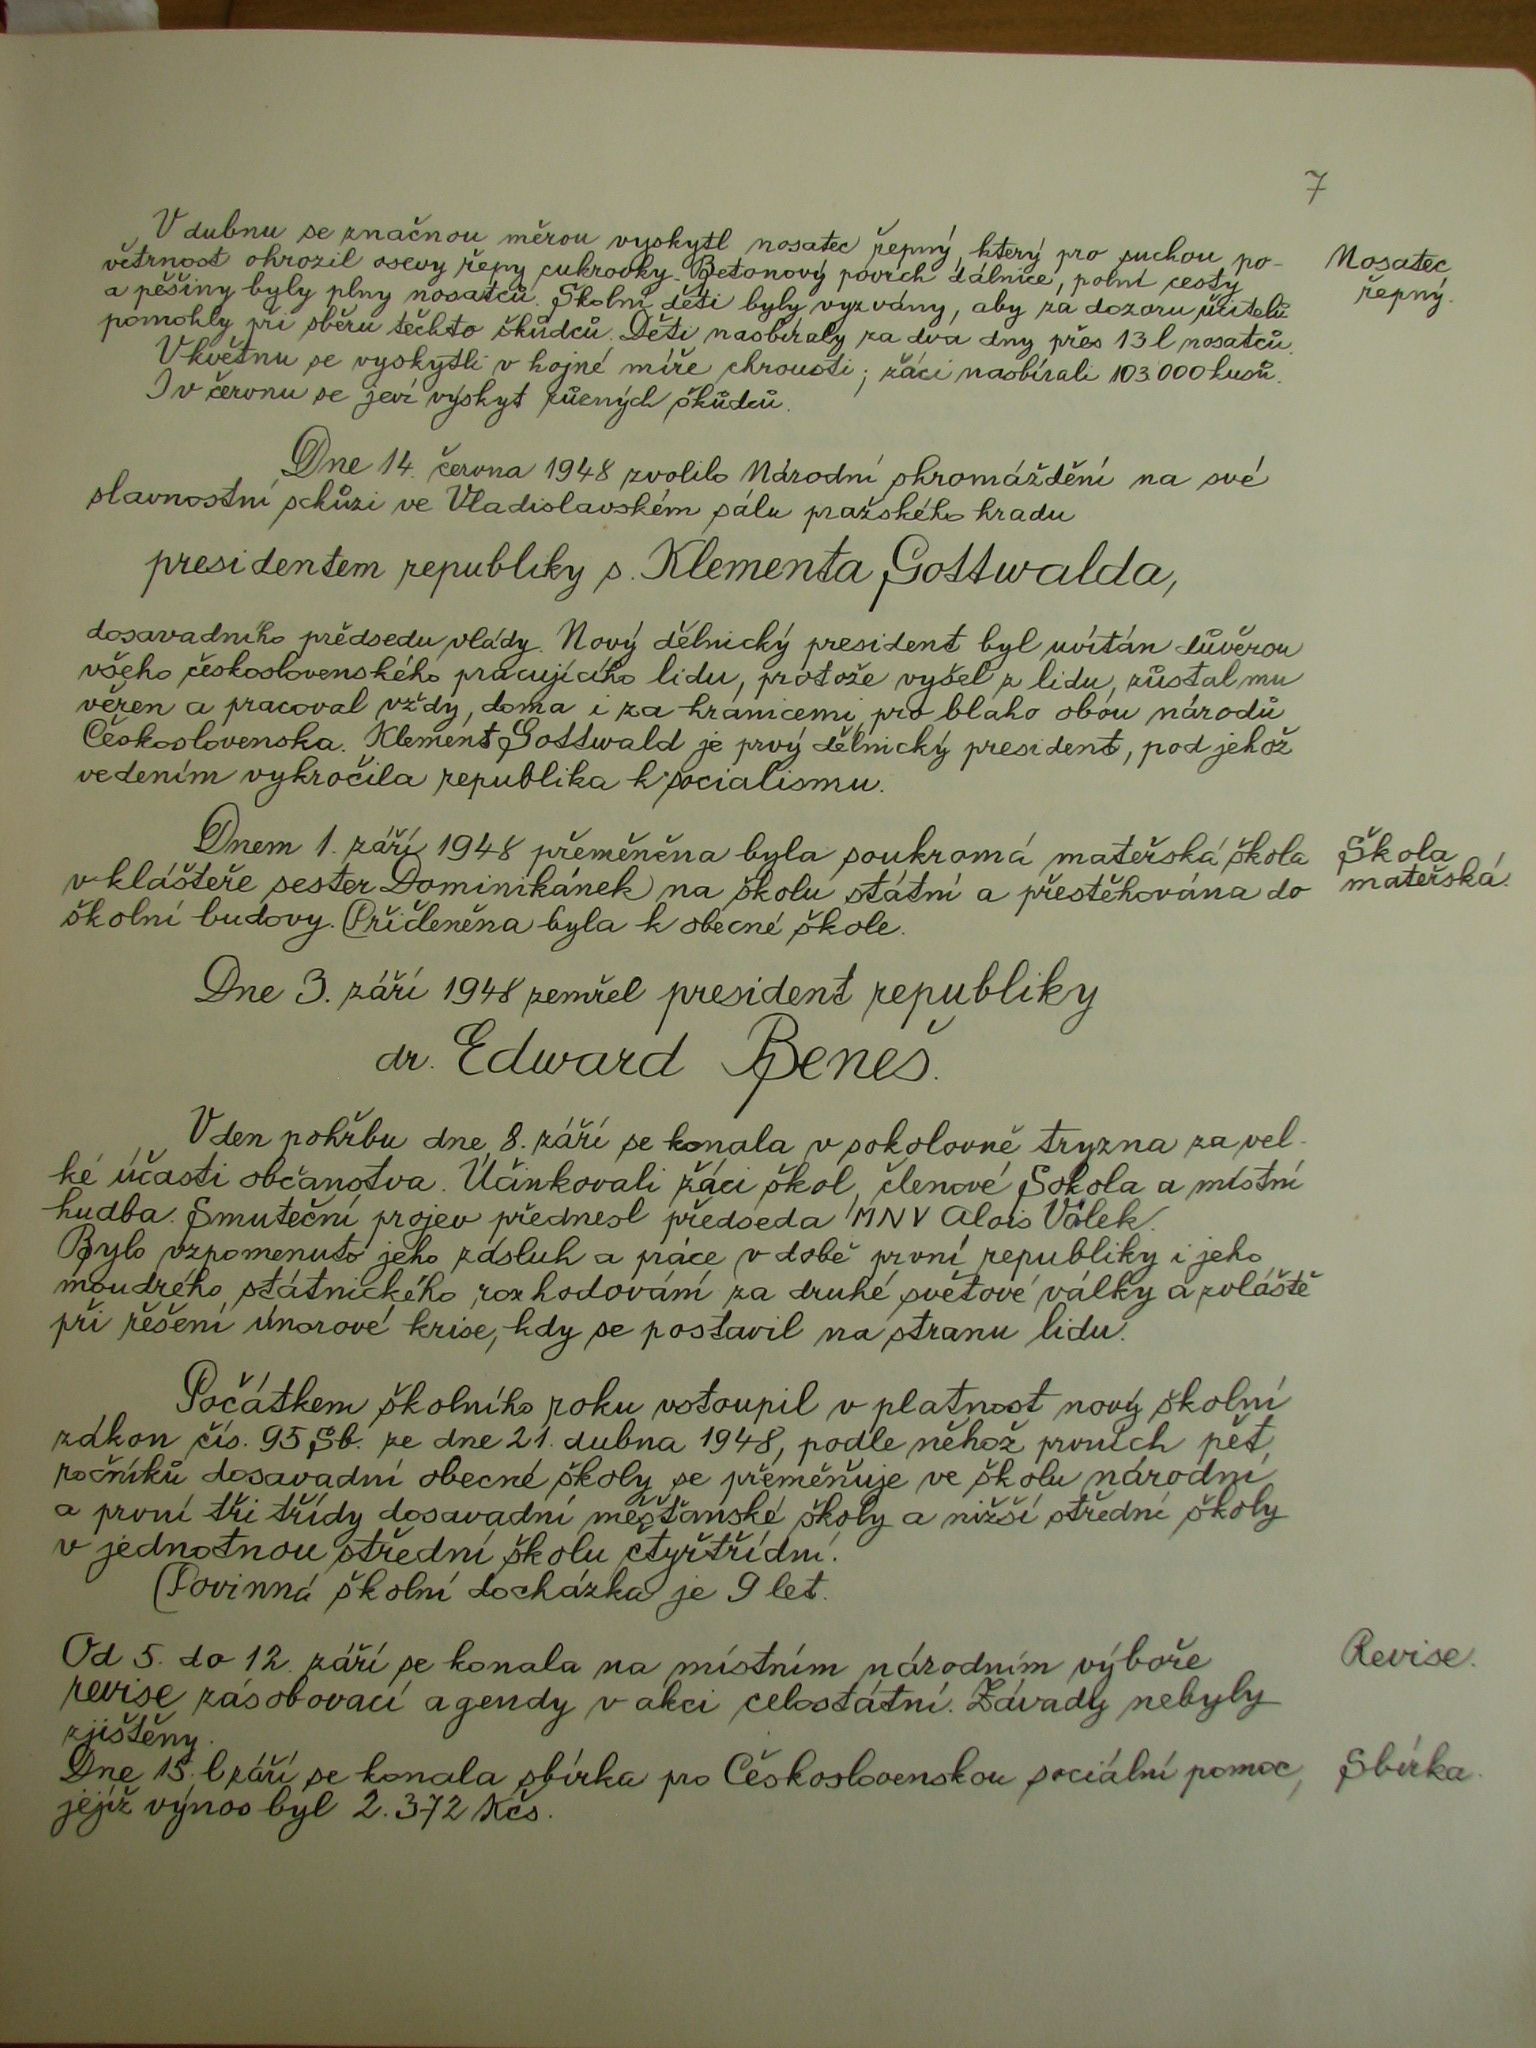 7
V dubnu se značnou měrou vyskytl nosatec řepný, který pro suchou po-
větrnost ohrozil osevy řepy cukrovky. Betonový povrch dálnice, polní cesty
a pěšiny byly plny nosatců. Školní děti byly vyzvány, aby za dozoru učitelů
pomohly při sběru těchto škůdců. Děti nasbíraly za dva dny přes 13 l nosatců.
V květnu se vyskytli v hojné míře chrousti; žáci nasbírali 103.000 kusů.
I v červnu se jeví výskyt různých škůdců.
Nosatec
řepný.
Dne 14. června 1948 zvolilo Národní shromáždění na své
slavnostní schůzi ve Vladislavském sálu pražského hradu
presidentem republiky s. Klementa Gottwalda,
dosavadního předsedu vlády. Nový dělnický president byl uvítán důvěrou
všeho československého pracujícího lidu, protože vyšel z lidu, zůstal mu
věren a pracoval vždy, doma i za hranicemi, pro blaho obou národů
Československa. Klement Gottwald je prvý dělnický president, pod jehož
vedením vykročila republika k socialismu.
Dnem 1. září 1948 přeměněna byla soukromá mateřská škola
v klášteře sester Dominikánek na školu státní a přestěhována do
školní budovy. Přičleněna byla k obecné škole.
Škola
mateřská.
Dne 3. září 1948 zemřel president republiky
dr. Edward Beneš.
V den pohřbu dne 8. září se konala v sokolovně tryzna za vel-
ké účasti občanstva. Účinkovali žáci škol, členové Sokola a místní
hudba. Smuteční projev přednesl předseda MNV Alois Válek.
Bylo vzpomenuto jeho zásluh a práce v době první republiky i jeho
moudrého státnického rozhodování za druhé světové války a zvláště
při řešení únorové krise, kdy se postavil na stranu lidu.
Počátkem školního roku vstoupil v platnost nový školní
zákon čís. 95 Sb. ze dne 21. dubna 1948, podle něhož prvních pět
ročníků dosavadní obecné školy se přeměňuje ve školu národní
a první tři třídy dosavadní měšťanské školy a nižší střední školy
v jednotnou střední školu čtyřtřídní.
Povinná školní docházka je 9 let.
Od 5. do 12. září se konala na místním národním výboře
revise zásobovací agendy v akci celostátní. Závady nebyly
zjištěny.
Revise.
Dne 15. září se konala sbírka pro Československou sociální pomoc,
jejíž výnos byl 2.372 Kčs.
Sbírka.